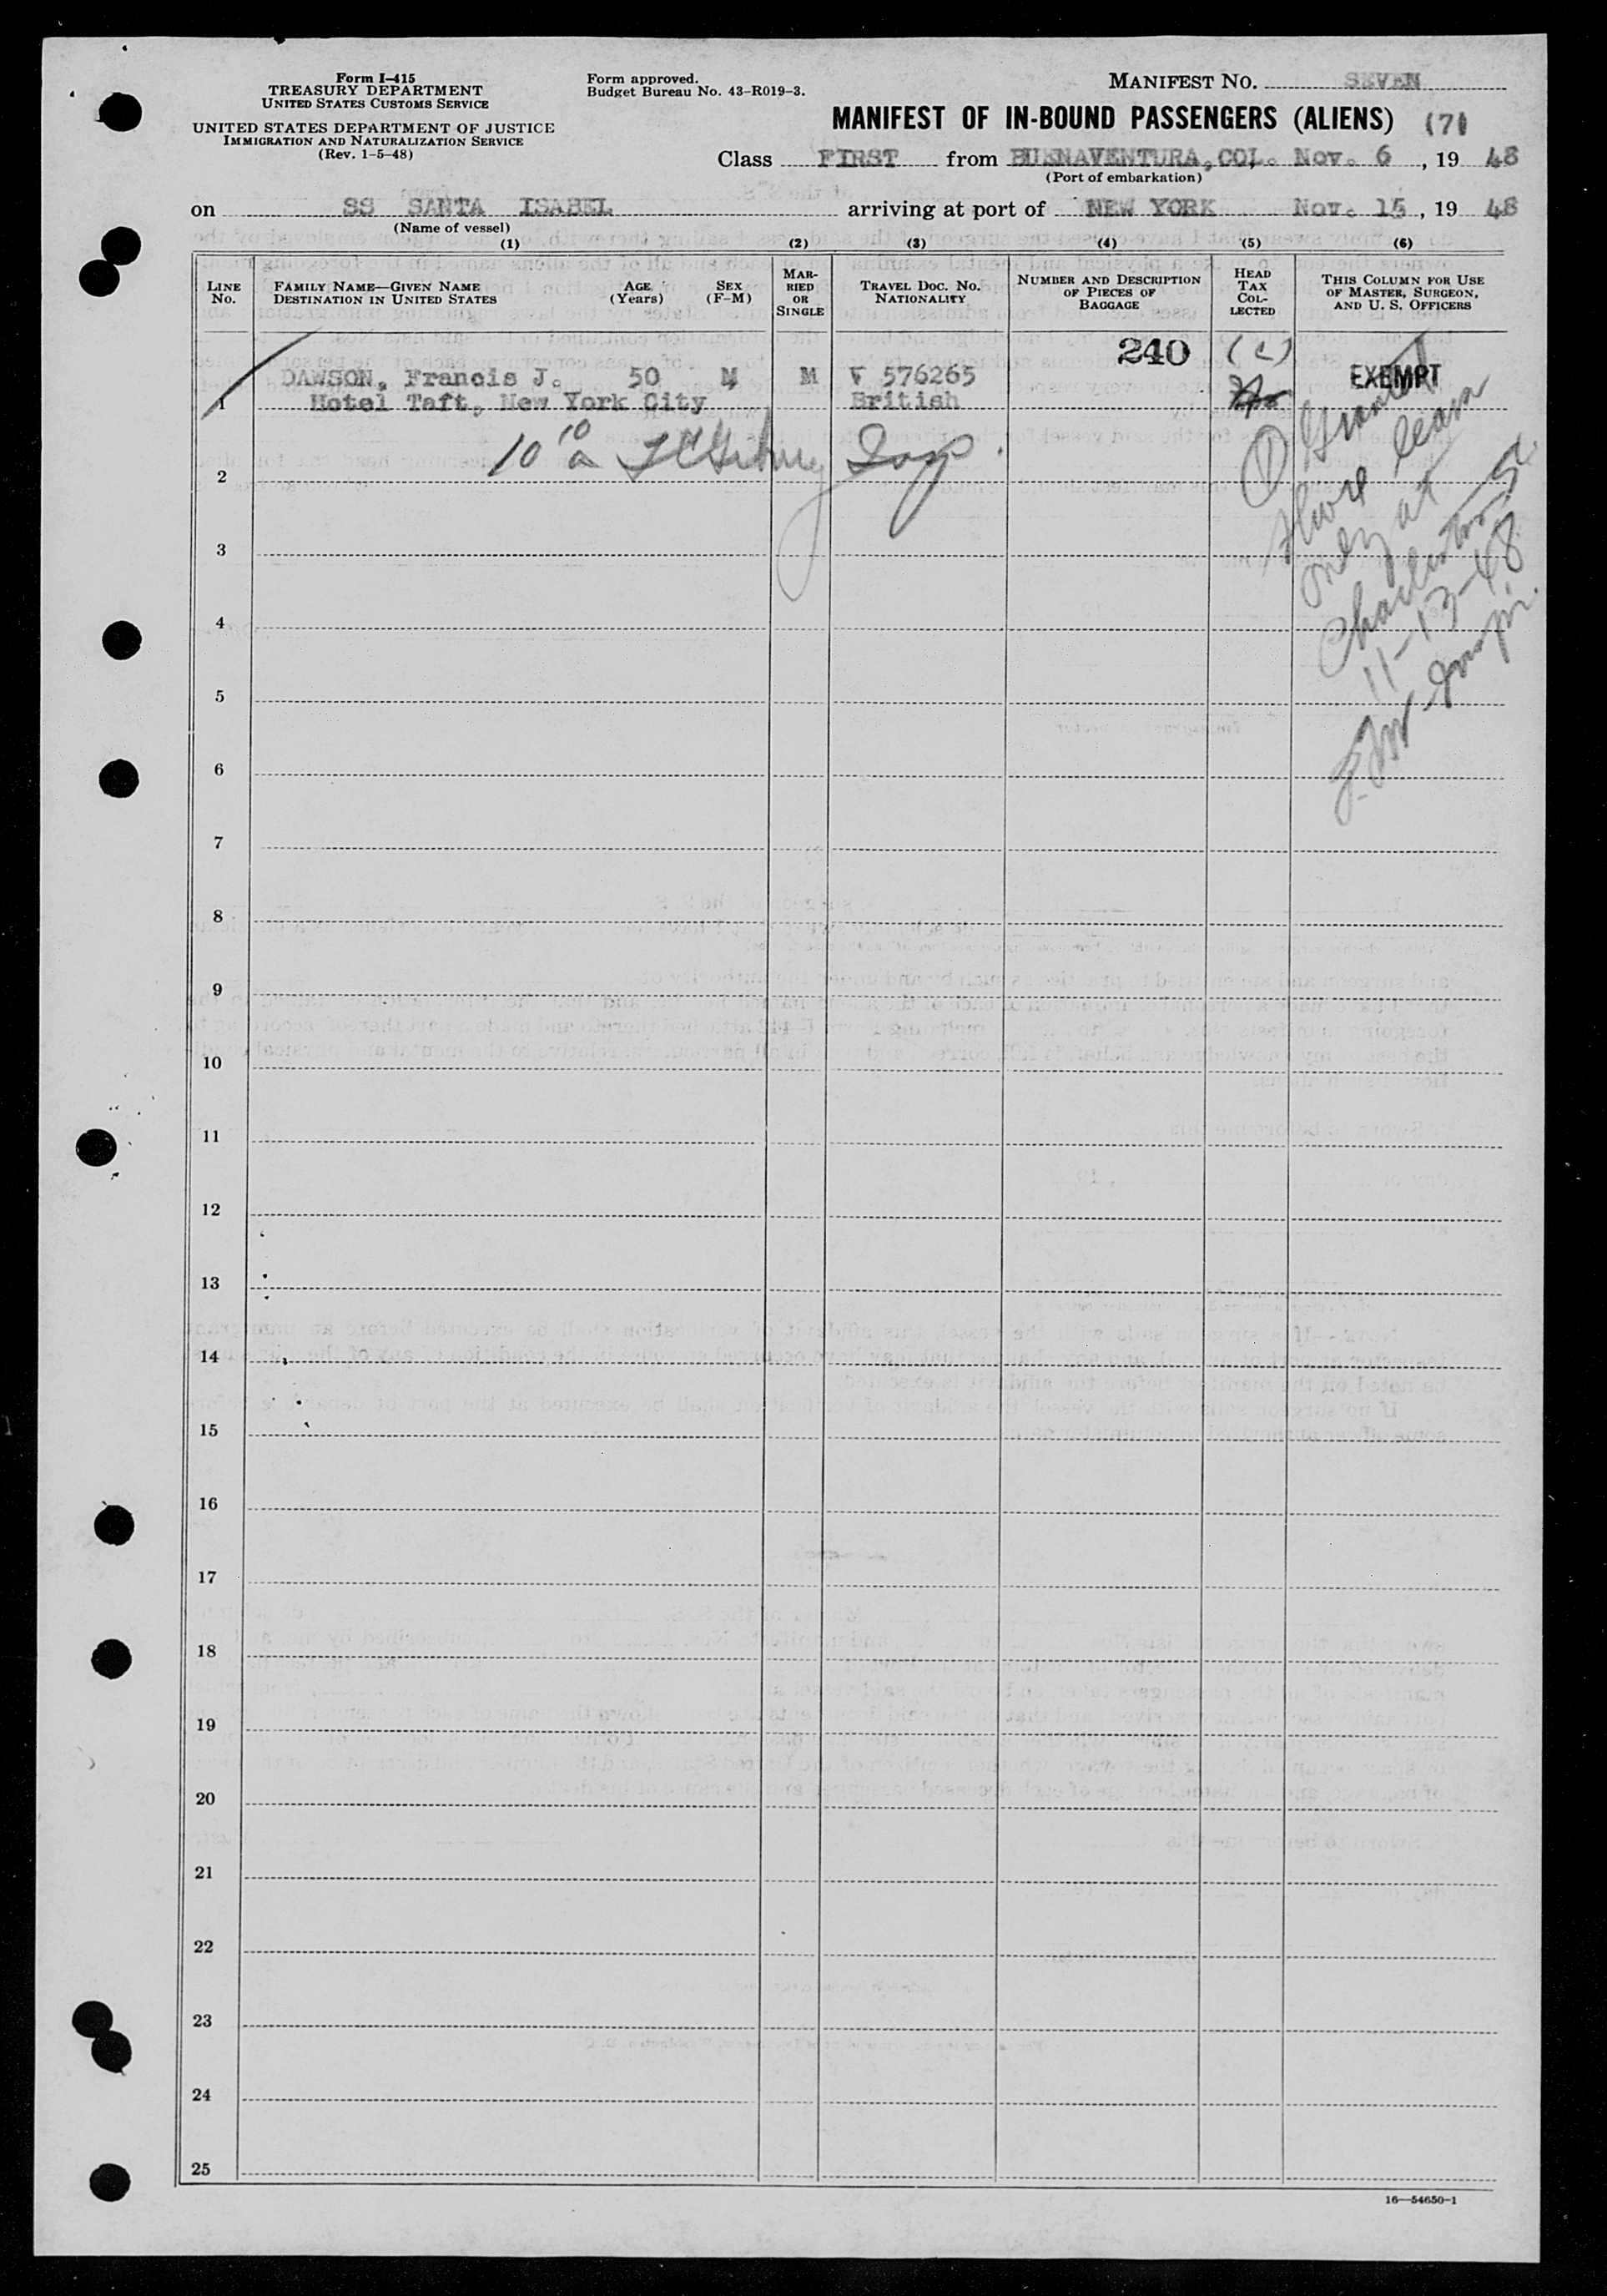 Form I-415
TREASURY DEPARTMENT
UNITED STATES CUSTOMS SERVICE
UNITED STATES DEPARTMENT OF JUSTICE
IMMIGRATION AND NATURALIZATION SERVICE
(Rev. 1-5-48)
Form approved.
Budget Bureau No. 43-R019-3.
MANIFEST NO. SEVEN
MANIFEST OF IN-BOUND PASSENGERS (ALIENS) (7)
Class FIRST from BUENAVENTURA, COL. Nov. 6, 1948
(Port of embarkation)
on SS SANTA ISABEL arriving at port of NEW YORK Nov. 15, 1948
(Name of vessel)
(1) (2) (3) (4) (5) (6)
LINE No.
FAMILY NAME—GIVEN NAME
DESTINATION IN UNITED STATES
AGE (Years)
SEX (F-M)
MARRIED OR SINGLE
TRAVEL DOC. NO.
NATIONALITY
NUMBER AND DESCRIPTION OF PIECES OF BAGGAGE
HEAD TAX COLLECTED
THIS COLUMN FOR USE OF MASTER, SURGEON, AND U. S. OFFICERS
240 (c)
DAWSON, Francis J. 50 M M V 576265 EXEMPT
1 Hotel Taft, New York City British
10 10 a Insp.
Granted
shore leave
only at
Charleston SC
11-13-48
Inspr.
2
3
4
5
6
7
8
9
10
11
12
13
14
15
16
17
18
19
20
21
22
23
24
25
16—54650-1